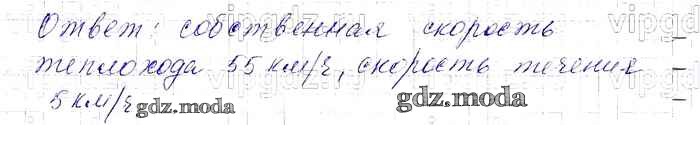 Ответ: собственная скорость
теплохода 55 км/ч, скорость течения
5 км/ч
gdz.moda gdz.moda